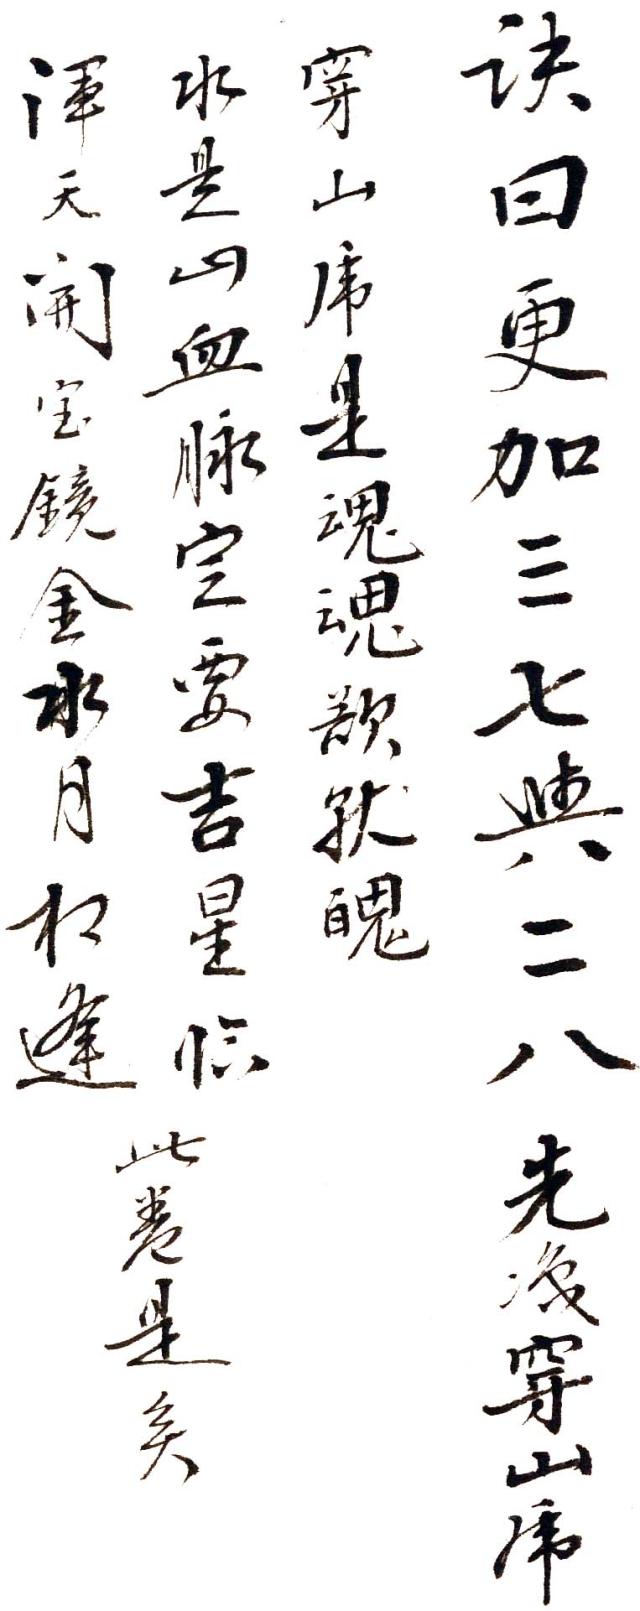 訣曰更加三七與二八先穿山虎
穿山虎是魂魂欲就魄
水是山血脉定要吉星临
渾天開宝鏡金水月相逢
此卷是矣